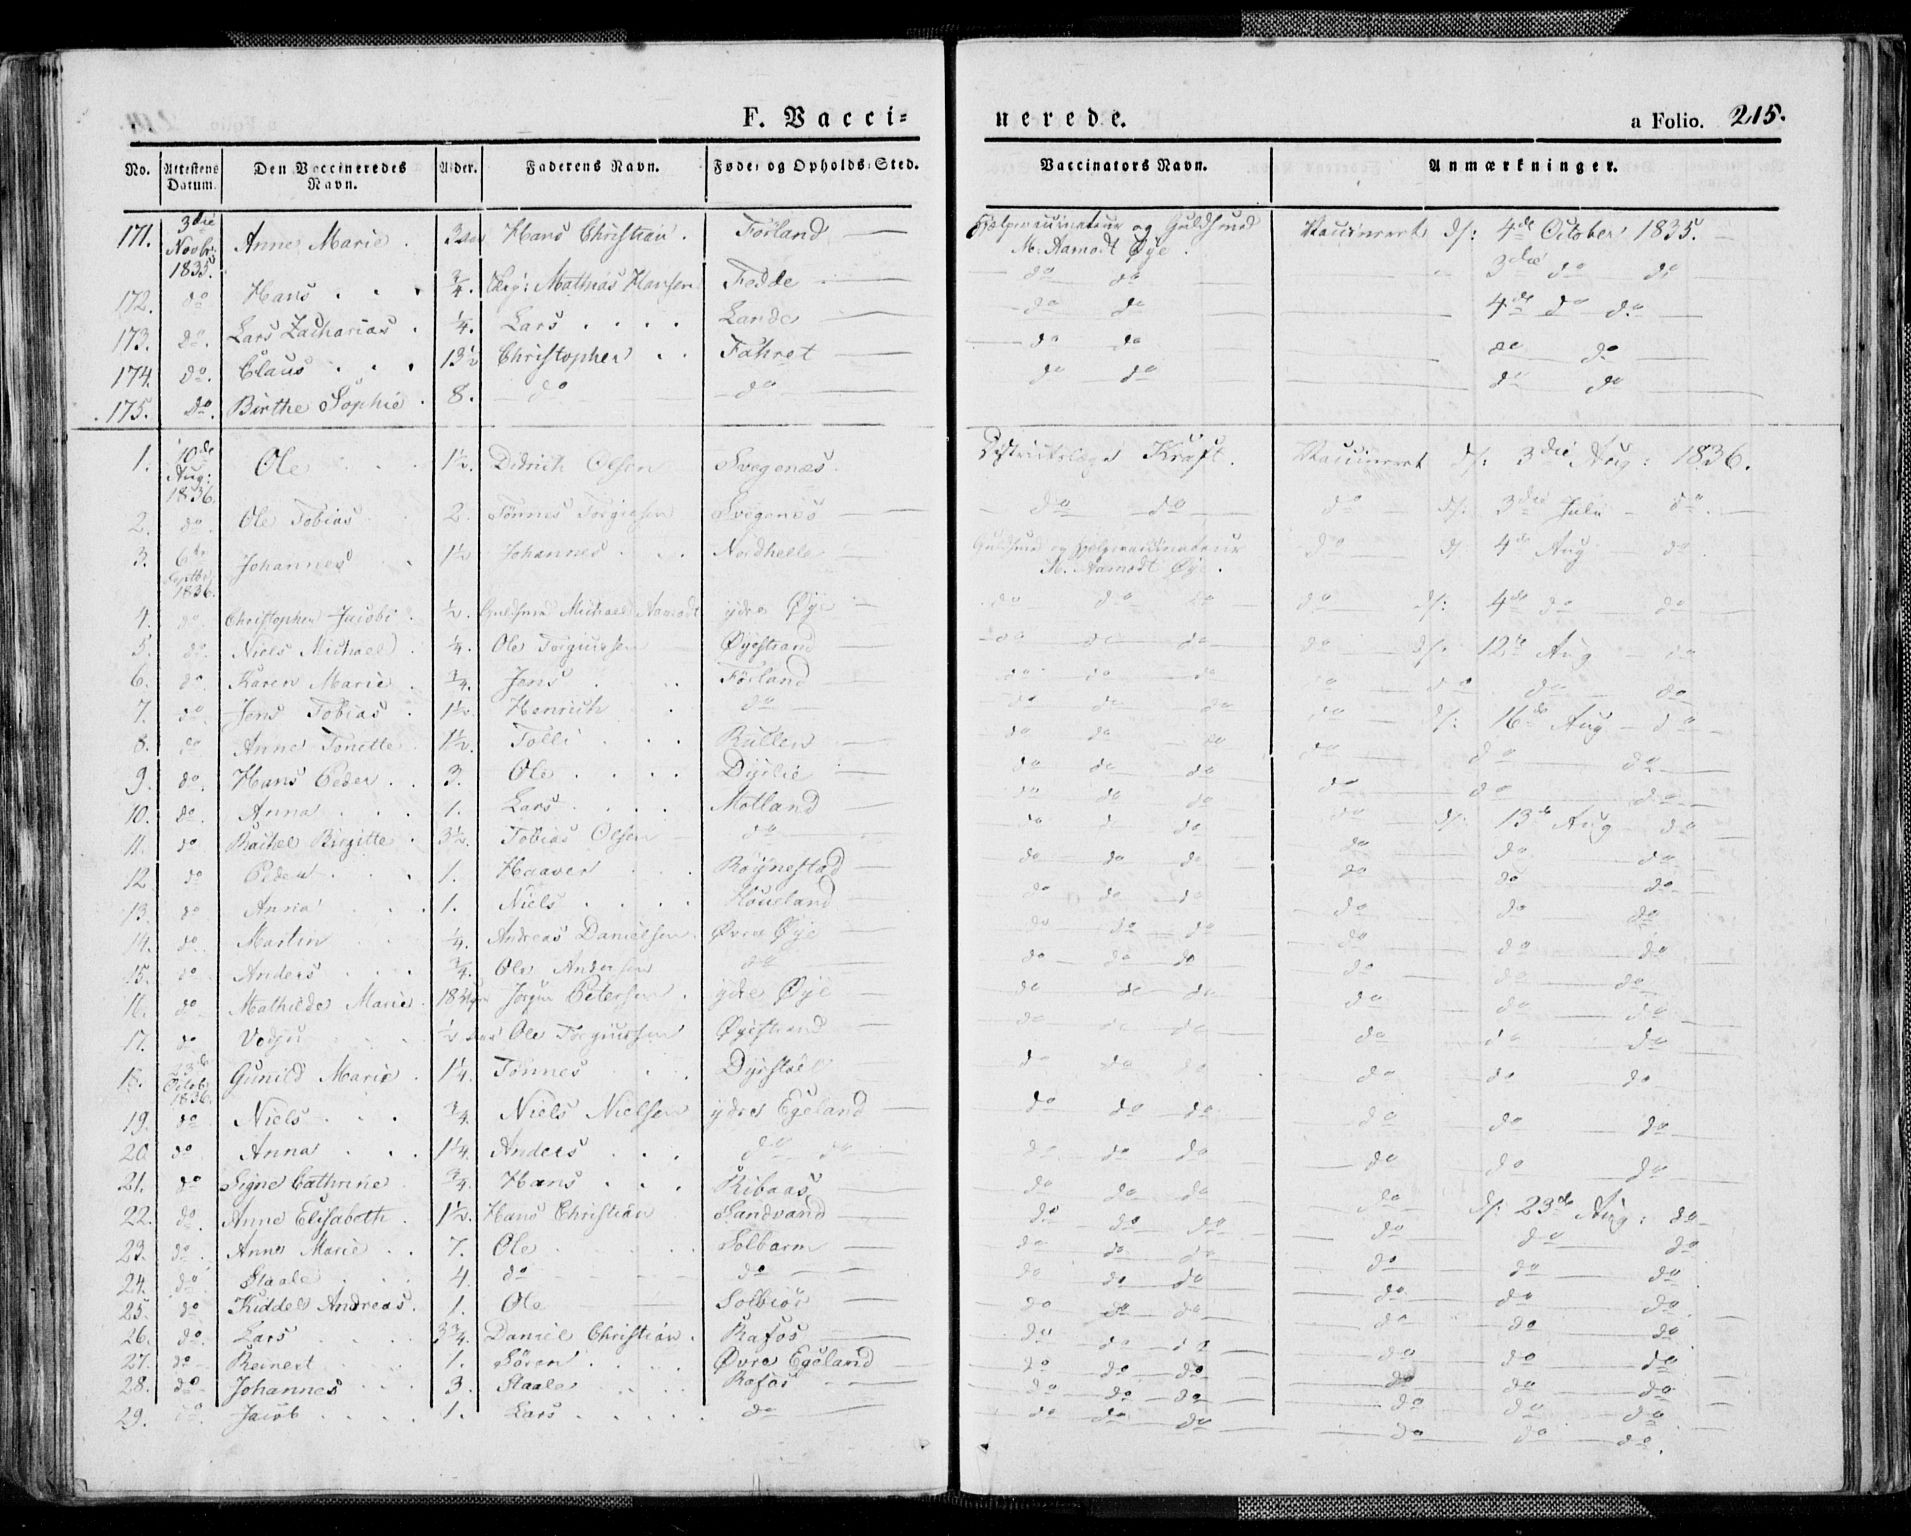 F. Vacci=
nerede.
a Folio. 215.
No. Attestens Datum. Den Vaccineredes Navn. Alder. Faderens Navn. Føde- og Opholds-Sted. Vaccinators Navn. Anmærkninger.
171. 3die Novbr. 1835. Anne Marie. Hans Christian. Førland Hjelpevaccinateur og Guldsmed M. Aamodt Øye. Vaccineret d/: 4de October 1835.
172. do Hans 3/4. Mathias Hansen Fedde do do 3die do do
173. do. Lars Zacharias. 1/4. Lars Lande do do 4de do do
174. do. Claus 13 1/2 Christopher Fahret do do do do
175. do. Birthe Sophie. 8. do do do do do do
1. 10de Aug: 1836. Ole 1 1/2. Didrich Olsen Svegenæs. Districtslæge Kraft. Vaccineret d/: 3die Aug: 1836.
2. do. Ole Tobias 2. Tønnes Torgiersen Svegenes do do do d/: 3die Juli do.
3. 6te Septbr. 1836. Johannes 1 1/2 Johannes Nordhelle Guldsmed og Hjelpevaccinateur M. Aamodt Øye. do d/: 4de Aug do
4. do. Christopher Jacob. 1/2. Guldsmed Michael Aamodt ydre Øye do do do do d/: 4de do do
5. do. Niels Michael. 1/4. Ole Torgiussen Øyestrand do do do do d/: 12te Aug do
6. do. Karen Marie. 3/4. Jens Førland do do do do do do do
7. do. Jens Tobias. 1 1/2. Henrich do do do do do d/: 16de Aug do
8. do Anne Tonette. 1 1/2. Tolli Rullen do do do do do do
9. do. Hans Peder. 3. Ole Dyrlie do do do do do do
10. do. Anna 1. Lars Motland do do do do d/: 13de Aug do
11. do Rachel Birgitte. 3 1/2. Tobias Olsen do do do do do do do
12 do Peder 1. Haaver Røynestad do do do do do do
13. do. Anna 1. Niels Houeland do do do do do do
14. do. Martin 1/4. Andreas Danielsen. Øvre Øye do do do do do do
15. do. Anders 3/4. Ole Andersen do do do do do do do
16. do Mathilde Marie. Jørgen Petersen. ydre Øye do do do do do do
17. do 1/2 Ole Torgiussen Øyestrand do do do do do do
18. 23de Octob. 1836. Gunild Marie. 1 1/4. Tønnes Dyrstøl do do do do do do
19. do Niels 3/4. Niels Nielsen ydre Egeland do do do do do do
20. do Anna 1 1/4. Anders do do do do do do do do
21. do Signe Cathrine 3/4. Hans Ribaas do do do do d/: 23de Aug: do
22. do. Anne Elisabeth. 1 1/2. Hans Christian Sandvand do do do do do do
23. do. Anne Marie 7. Ole Solbarm do do do do do do
24. do. Staale 4. do do do do do do do do
25. do Kiddel Andreas. 1. Ole Solbiør do do do do do do
26. do. Lars 3 3/4. Daniel Christian. Rafos do do do do do do
27. do Reinert 1. Søren Øvre Egeland do do do do do do
28. do Johannes 3. Staale Rafos do do do do do do
29. do. Jacob 1. Lars do do do do do do do.